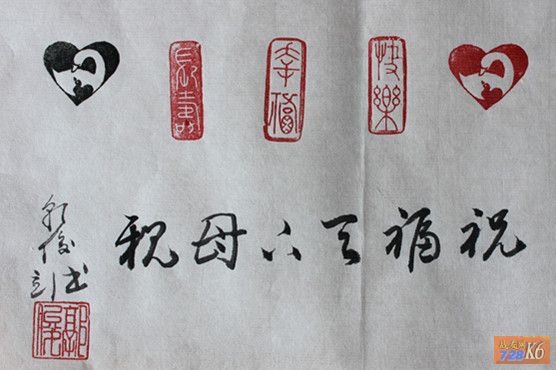 快樂
幸福
長壽
祝福天下母親
728
K6